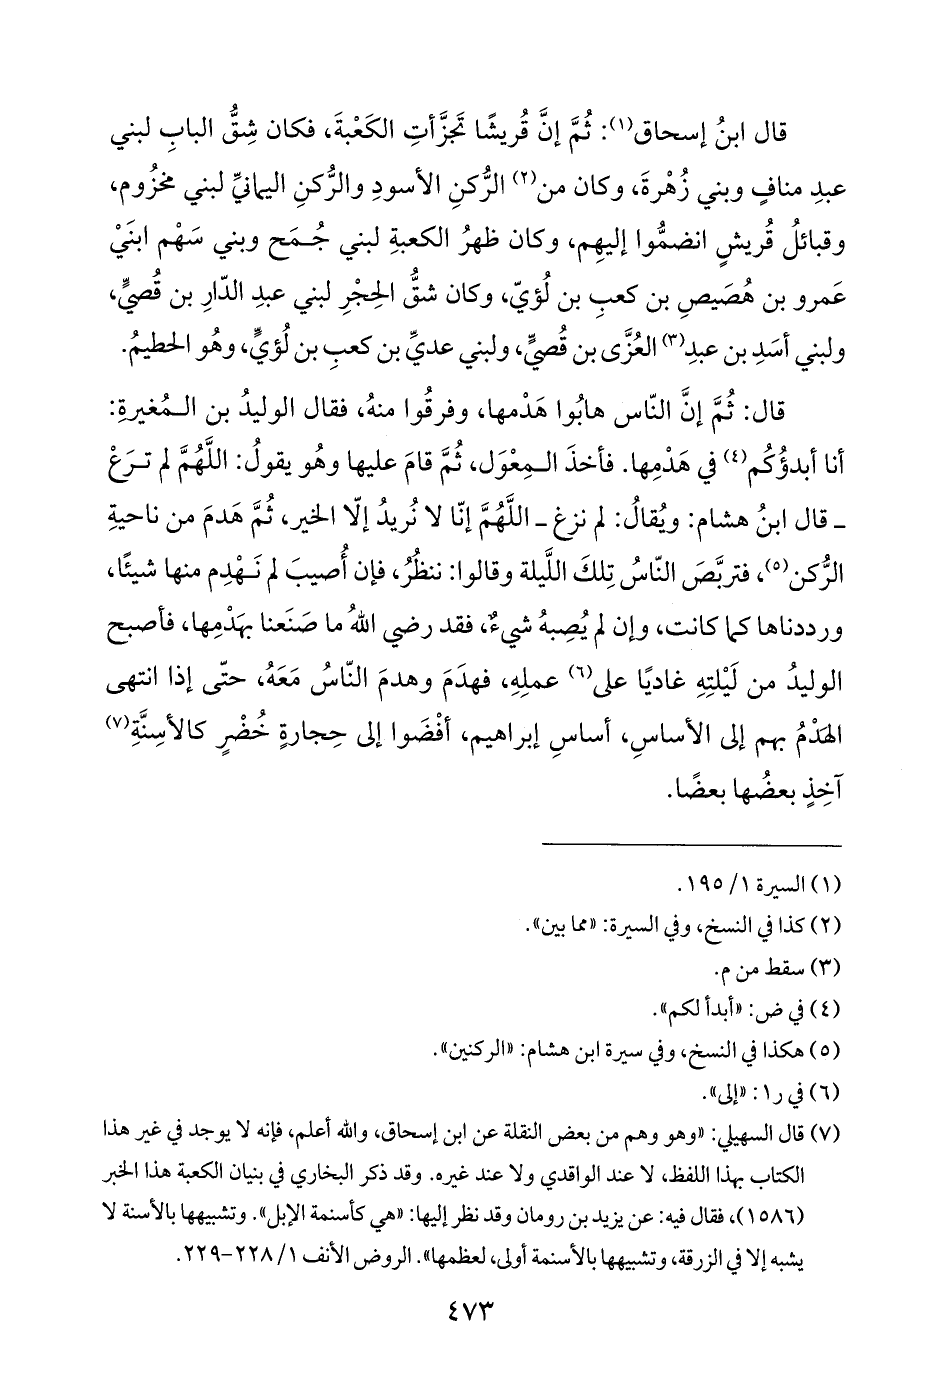 قال ابنُ إسحاق(١): ثُمَّ إنَّ قُريشًا تَجزَّأتِ الكَعْبةَ، فكان شِقُّ البابِ لبني
عبدِ منافٍ وبني زُهْرةَ، وكان من(٢) الرُّكنِ الأسودِ والرُّكنِ اليمانيِّ لبني مخزُوم،
وقبائلُ قُريشٍ انضمُّوا إليهِم، وكان ظهرُ الكعبةِ لبني جُمَح وبني سَهْم ابنَيْ
عَمرو بن هُصَيصِ بن كعبِ بن لُؤيّ، وكان شقُّ الحِجْرِ لبني عبدِ الدّارِ بن قُصيٍّ،
ولبني أسَدِ بن عبدِ(٣) العُزَّى بن قُصيٍّ، ولبني عديِّ بن كعبِ بن لُؤيٍّ، وهُو الحطيمُ.
قال: ثُمَّ إنَّ النّاس هابُوا هَدْمها، وفرقُوا منهُ، فقال الوليدُ بن المُغيرةِ:
أنا أبدؤُكُم(٤) في هَدْمِها. فأخذَ المِعْوَل، ثُمَّ قامَ عليها وهُو يقولُ: اللَّهُمَّ لم تـرَعْ
ـ قال ابنُ هشام: ويُقالُ: لم نزغ ـ اللَّهُمَّ إنّا لا نُريدُ إلّا الخير، ثُمَّ هَدمَ من ناحيةِ
الرُّكن(٥)، فتربَّصَ النّاسُ تِلكَ اللَّيلة وقالوا: ننظُرُ، فإن أُصيبَ لم نَهْدِم منها شيئًا،
ورددناها كما كانت، وإن لم يُصِبهُ شيءٌ، فقد رضي اللهُ ما صَنَعنا بهَدْمِها، فأصبح
الوليدُ من لَيْلتِهِ غاديًا على(٦) عملِهِ، فهدَمَ وهدمَ النّاسُ مَعَهُ، حتّى إذا انتهى
الهَدْمُ بهم إلى الأساسِ، أساسِ إبراهيم، أفْضَوا إلى حِجارةٍ خُضْرٍ كالأسِنَّةِ(٧)
آخِذٍ بعضُها بعضًا.
(١) السيرة ١/ ١٩٥.
(٢) كذا في النسخ، وفي السيرة: «مما بين».
(٣) سقط من م.
(٤) في ض: «أبدأ لكم».
(٥) هكذا في النسخ، وفي سيرة ابن هشام: «الركنين».
(٦) في ر١: «إلى».
(٧) قال السهيلي: «وهو وهم من بعض النقلة عن ابن إسحاق، والله أعلم، فإنه لا يوجد في غير هذا
الكتاب بهذا اللفظ، لا عند الواقدي ولا عند غيره. وقد ذكر البخاري في بنيان الكعبة هذا الخبر
(١٥٨٦)، فقال فيه: عن يزيد بن رومان وقد نظر إليها: «هي كأسنمة الإبل». وتشبيهها بالأسنة لا
يشبه إلا في الزرقة، وتشبيهها بالأسنمة أولى، لعظمها». الروض الأنف ١/ ٢٢٨-٢٢٩.
٤٧٣